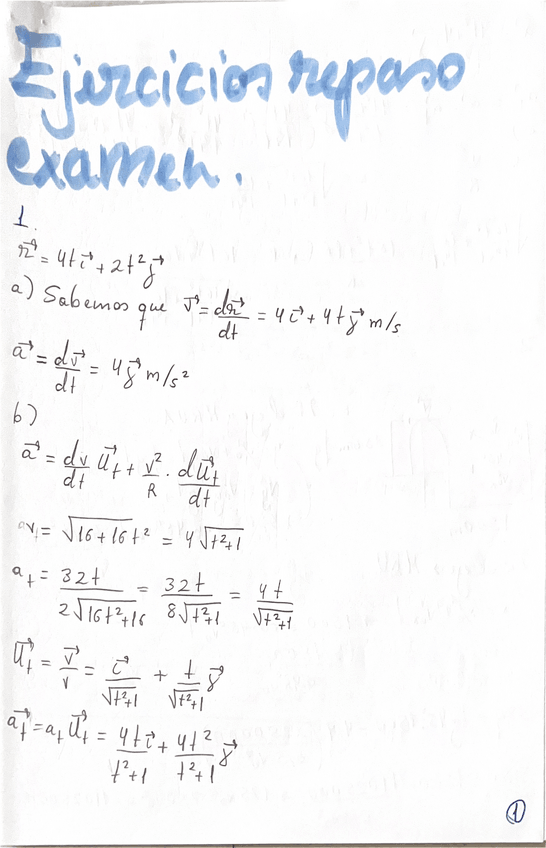 Ejercicios repaso
examen.
1.
r⃗ = 4t i⃗ + 2t² j⃗
a) Sabemos que v⃗ = dr⃗/dt = 4 i⃗ + 4t j⃗ m/s
a⃗ = dv⃗/dt = 4 j⃗ m/s²
b)
a⃗ = dv/dt u⃗t + v²/R · du⃗t/dt
= √(16+16t²) = 4√(t²+1)
at = 32t/(2√(16t²+16)) = 32t/(8√(t²+1)) = 4t/√(t²+1)
u⃗t = v⃗/v = i⃗/√(t²+1) + t/√(t²+1) j⃗
a⃗t = at u⃗t = 4t i⃗/(t²+1) + 4t²/(t²+1) j⃗
1